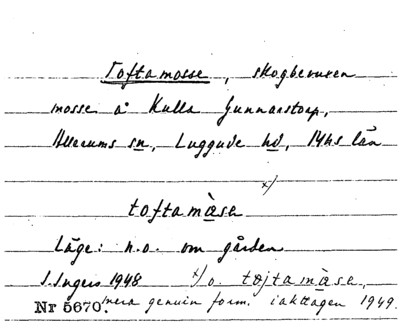 Toftamosse, skogbevuxen
mosse å Kulla Gunnarstorp,
Allerums sn, Luggude hd, Mhs län
x/
toftamåsa
Läge: n.o. om gården
I. Ingers 1948 x/ o. tojtamåsa,
Nr 5670. mera genuin form. iakttagen 1949.